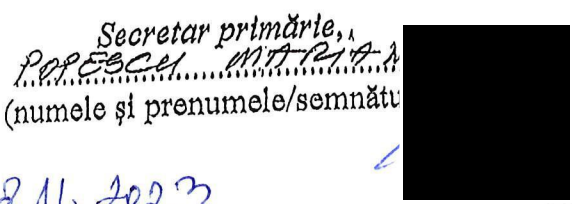 Secretar primărie,
POPESCU MARIA
(numele și prenumele/semnătu
11. 2023